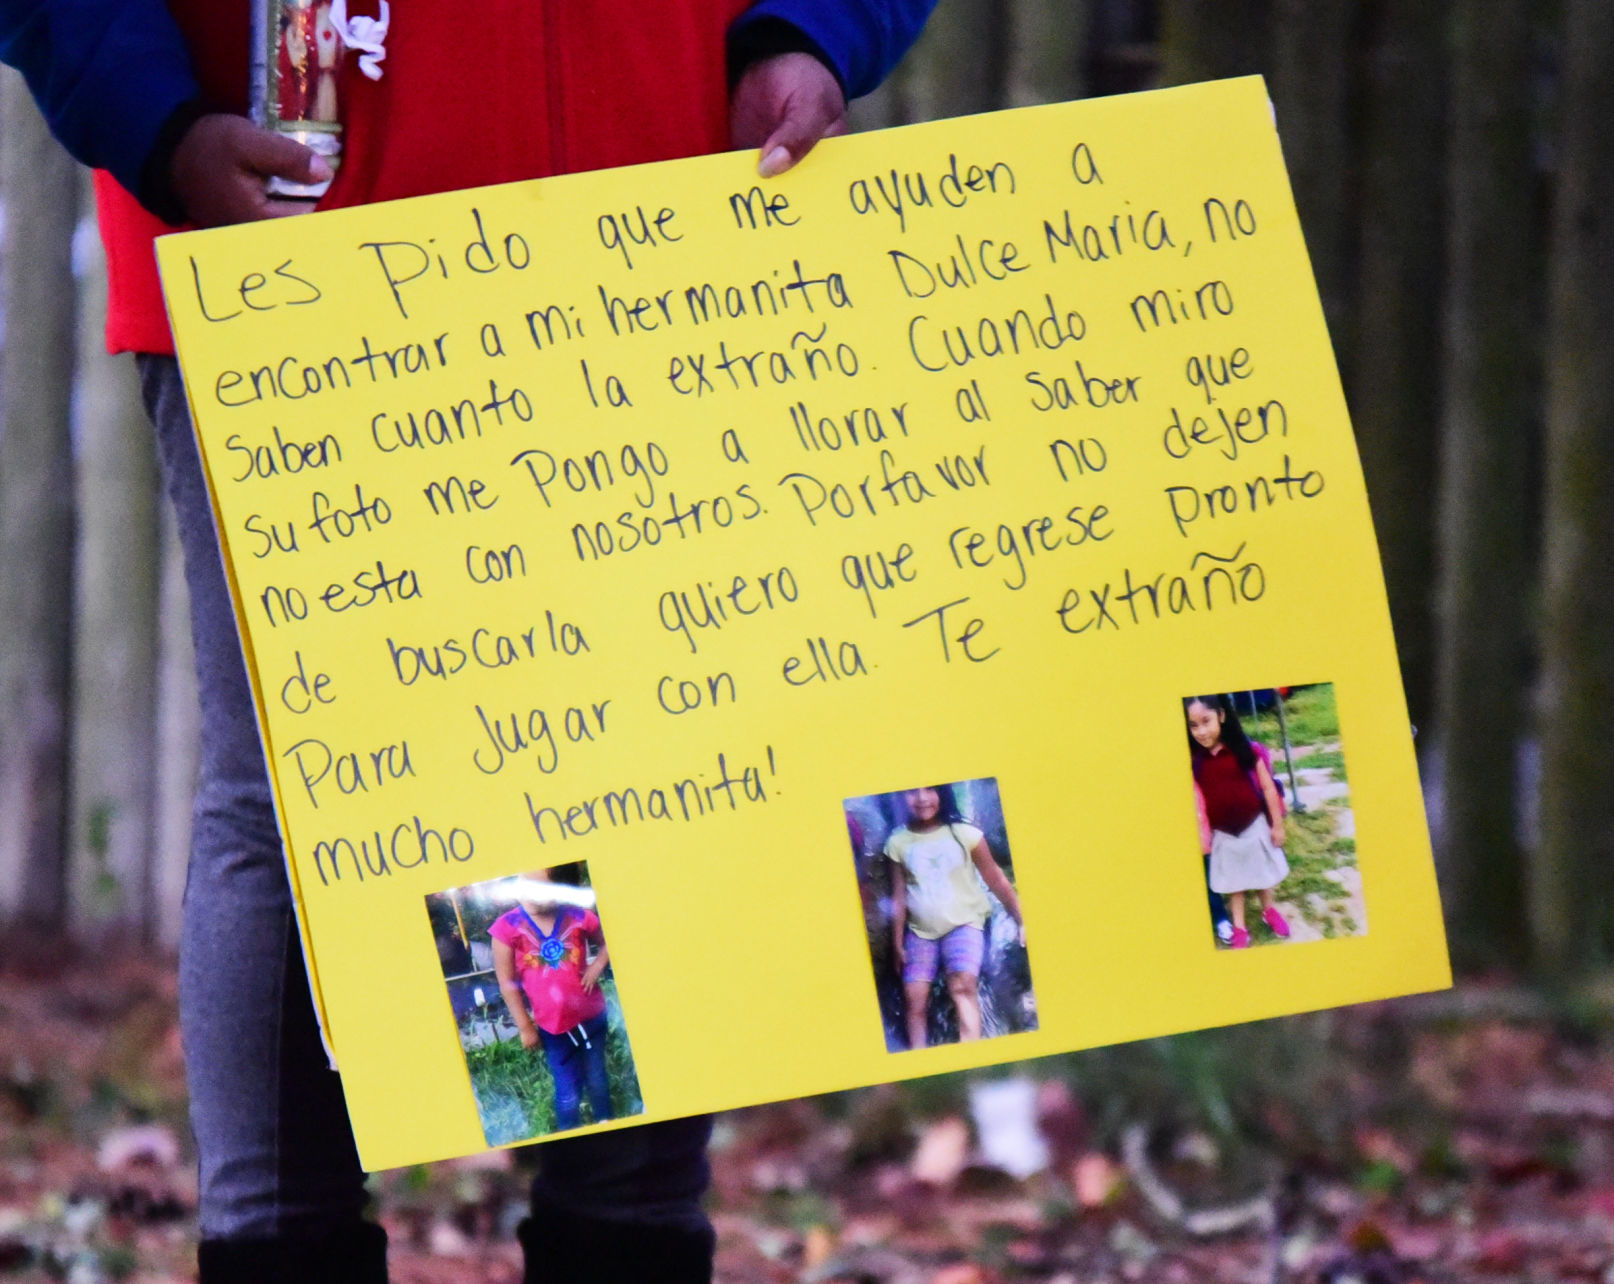 Les Pido que me ayuden a
encontrar a mi hermanita Dulce Maria, no
saben cuanto la extraño. Cuando miro
su foto me Pongo a llorar al saber que
no esta con nosotros. Porfavor no dejen
de buscarla quiero que regrese pronto
Para Jugar con ella. Te extraño
mucho hermanita!